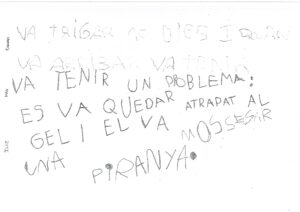 VA TRIGAR 10 DIES I QUAN
VA ARRIBAR VA TENIR
VA TENIR UN PROBLEMA:
ES VA QUEDAR ATRAPAT AL
GEL I EL VA MOSSEGAR
UNA PIRANYA.